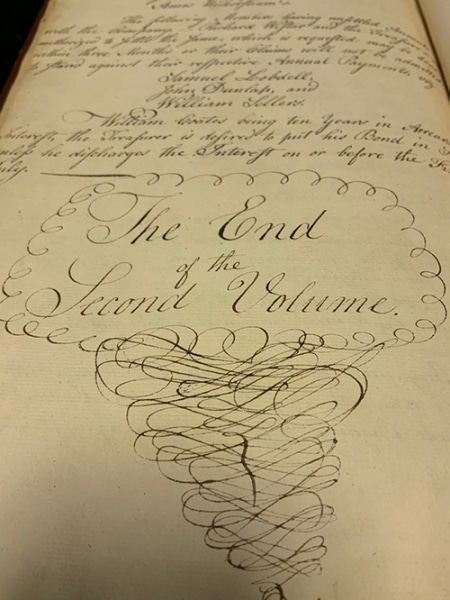 The following Members having unsettled
with the Company, Richard Wistar and the
authorized to settle the same, which is requested may be done
within three Months or their Claims will not be admitted
to stand against their respective Annual Payments, viz
Samuel Lobdell,
John Dunlap, and
William Sellers.
William Coates being ten Years in Arrear
Interest, the Treasurer is desired to put his Bond in
unless he discharges the Interest on or before the
July.
The End
of the
Second Volume.